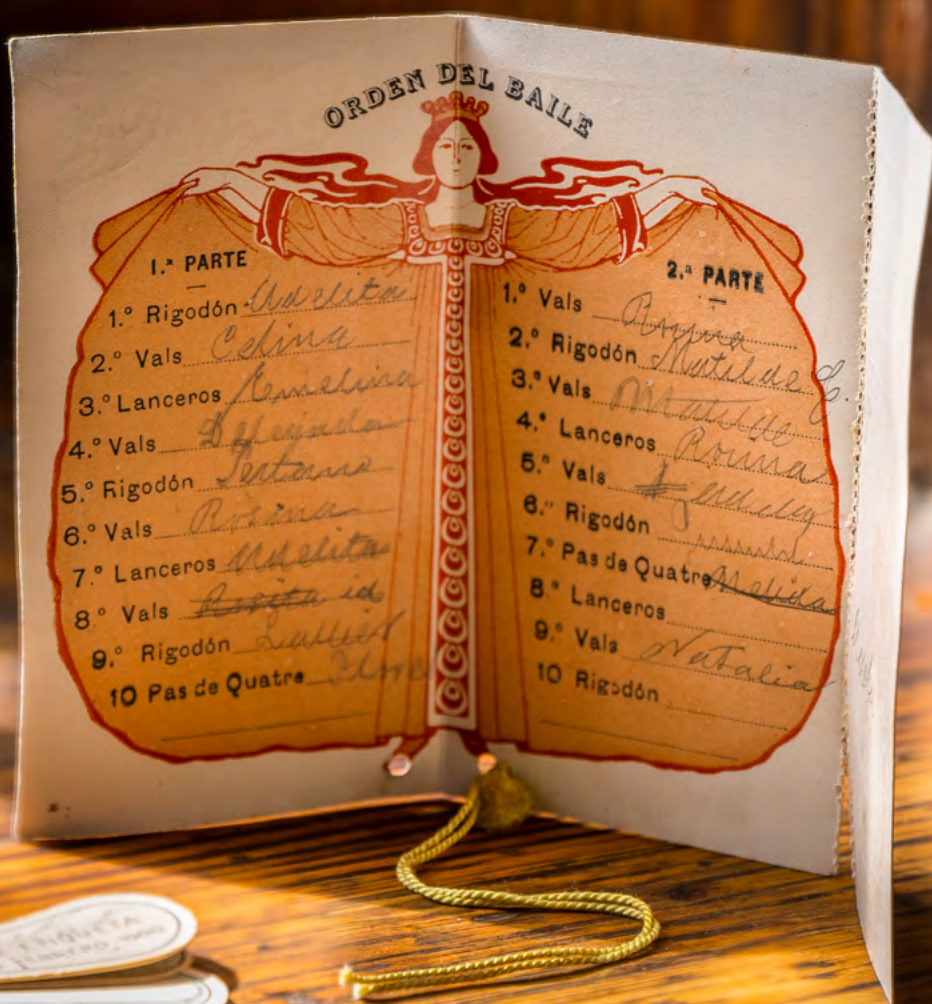 ORDEN DEL BAILE
1.ª PARTE
1.º Rigodón Adelita
2.º Vals Celina
3.º Lanceros Emelina
4.º Vals
5.º Rigodón
6.º Vals Rosina
7.º Lanceros Adelita
8.º Vals Rosita id
9.º Rigodón
10 Pas de Quatre
2.ª PARTE
1.º Vals Rosina
2.º Rigodón Matilde C.
3.º Vals Matilde
4.º Lanceros Rosina
5.º Vals
6.º Rigodón
7.º Pas de Quatre Melida
8.º Lanceros
9.º Vals Natalia
10 Rigodón
ETIQUETA